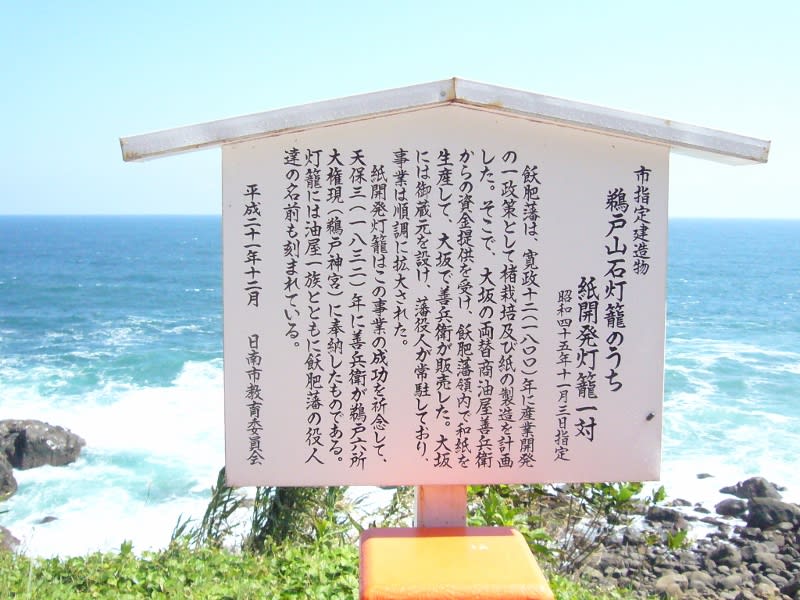 市指定建造物
鵜戸山石灯籠のうち
紙開発灯籠一対
昭和四十五年十一月三日指定
飫肥藩は、寛政十二(一八〇〇)年に産業開発
の一政策として楮栽培及び紙の製造を計画
した。そこで、大坂の両替商油屋善兵衛
からの資金提供を受け、飫肥藩領内で和紙を
生産して、大坂で善兵衛が販売した。大坂
には御蔵元を設け、藩役人が常駐しており、
事業は順調に拡大された。
紙開発灯籠はこの事業の成功を祈念して、
天保三(一八三二)年に善兵衛が鵜戸六所
大権現(鵜戸神宮)に奉納したものである。
灯籠には油屋一族とともに飫肥藩の役人
達の名前も刻まれている。
平成二十一年十二月 日南市教育委員会